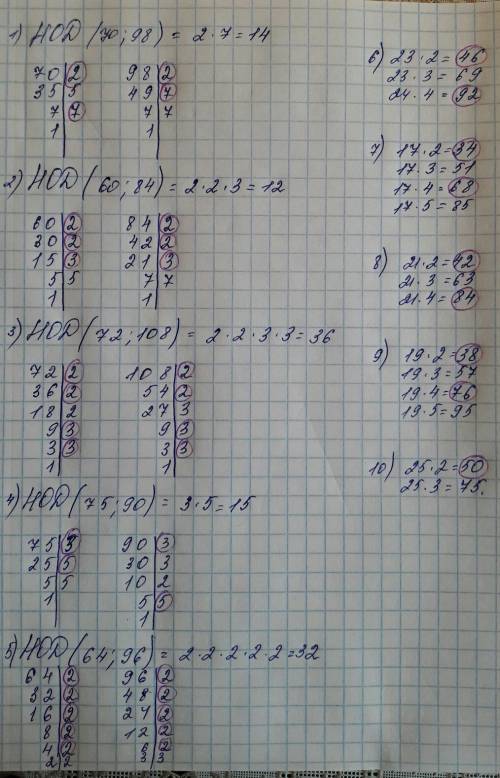 1) НОД (70; 98) = 2·7 = 14
70 | 2
35 | 5
7 | 7
1
98 | 2
49 | 7
7 | 7
1
2) НОД (60; 84) = 2·2·3 = 12
60 | 2
30 | 2
15 | 3
5 | 5
1
84 | 2
42 | 2
21 | 3
7 | 7
1
3) НОД (72; 108) = 2·2·3·3 = 36
72 | 2
36 | 2
18 | 2
9 | 3
3 | 3
1
108 | 2
54 | 2
27 | 3
9 | 3
3 | 3
1
4) НОД (75; 90) = 3·5 = 15
75 | 3
25 | 5
5 | 5
1
90 | 3
30 | 3
10 | 2
5 | 5
1
5) НОД (64; 96) = 2·2·2·2·2 = 32
64 | 2
32 | 2
16 | 2
8 | 2
4 | 2
2 | 2
96 | 2
48 | 2
24 | 2
12 | 2
6 | 2
3 | 3
6) 23·2 = 46
23·3 = 69
24·4 = 92
7) 17·2 = 34
17·3 = 51
17·4 = 68
17·5 = 85
8) 21·2 = 42
21·3 = 63
21·4 = 84
9) 19·2 = 38
19·3 = 57
19·4 = 76
19·5 = 95
10) 25·2 = 50
25·3 = 75.